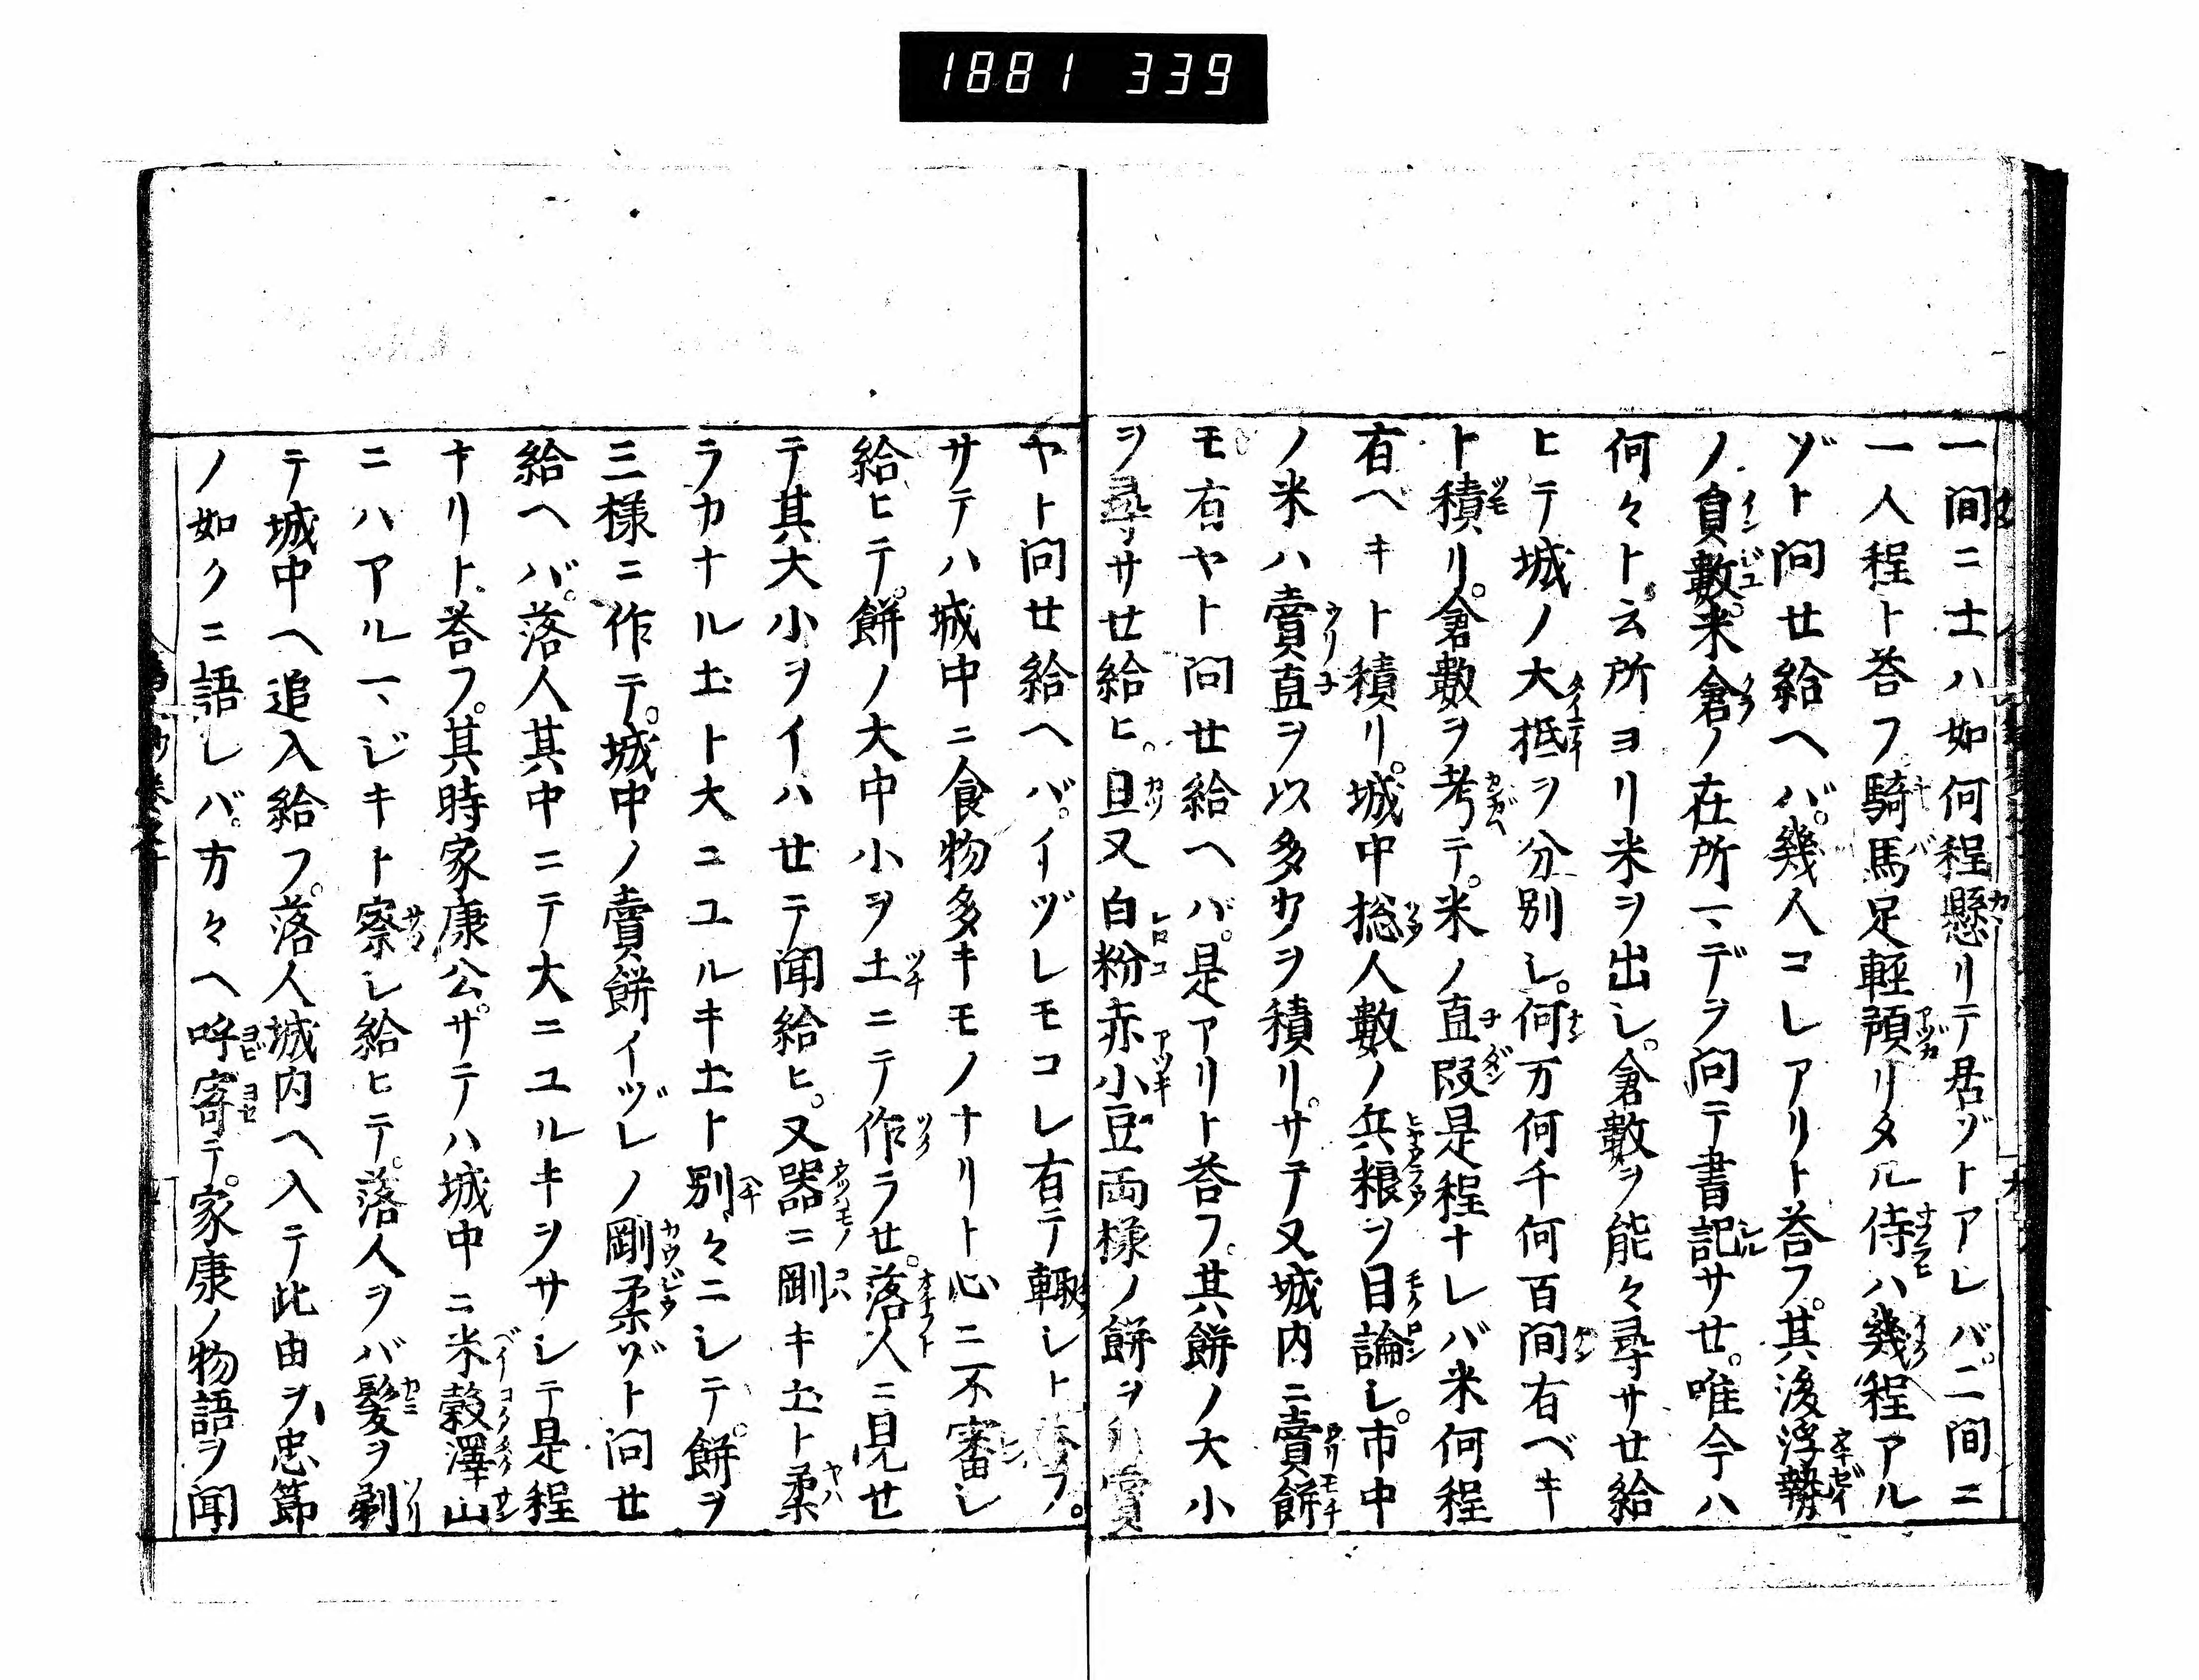 1881 339
一間ニ士ハ如何程懸リテ居ゾトアレバ。二間ニ
一人程ト荅フ。騎馬足輕預リタル侍ハ幾程アル
ゾト問セ給ヘバ。幾人コレアリト荅フ。其後浮勢
ノ員數。米倉ノ在所マデヲ問テ書記サセ。唯今ハ
何々ト云所ヨリ米ヲ出シ。倉數ヲ能々尋サセ給
ヒテ城ノ大抵ヲ分別シ。何万何千何百間有ベキ
ト積リ。倉數ヲ考テ。米ノ直段是程ナレバ米何程
有ベキト積リ。城中総人數ノ兵粮ヲ目論シ。市中
ノ米ハ賣直ヲ以多少ヲ積リ。サテ又城内ニ賣餅
モ有ヤト問セ給ヘバ。是アリト荅フ。其餅ノ大小
ヲ尋サセ給ヒ。且又白粉赤小豆両様ノ餅ヲ賞
ヤト問セ給ヘバ。イヅレモコレ有テ輙シト荅フ。
サテハ城中ニ食物多キモノナリト心ニ不審シ
給ヒテ。餅ノ大中小ヲ土ニテ作ラセ。落人ニ見セ
テ其大小ヲイハセテ聞給ヒ。又器ニ剛キ土ト柔
ラカナル土ト大ニユルキ土ト別々ニシテ。餅ヲ
三様ニ作テ。城中ノ賣餅イヅレノ剛柔ゾト問セ
給ヘバ。落人其中ニテ大ニユルキヲサシテ是程
ナリト荅フ。其時家康公。サテハ城中ニ米穀澤山
ニハアルマジキト察シ給ヒテ。落人ヲバ髪ヲ剃
テ城中ヘ追入給フ。落人城内ヘ入テ此由ヲ忠節
ノ如クニ語シバ。方々ヘ呼寄テ。家康ノ物語ヲ聞